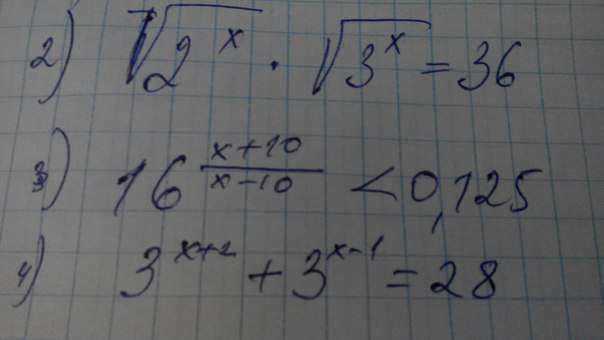 2) √2^x · √3^x = 36
3) 16^((x+10)/(x-10)) < 0,125
4) 3^(x+2) + 3^(x-1) = 28